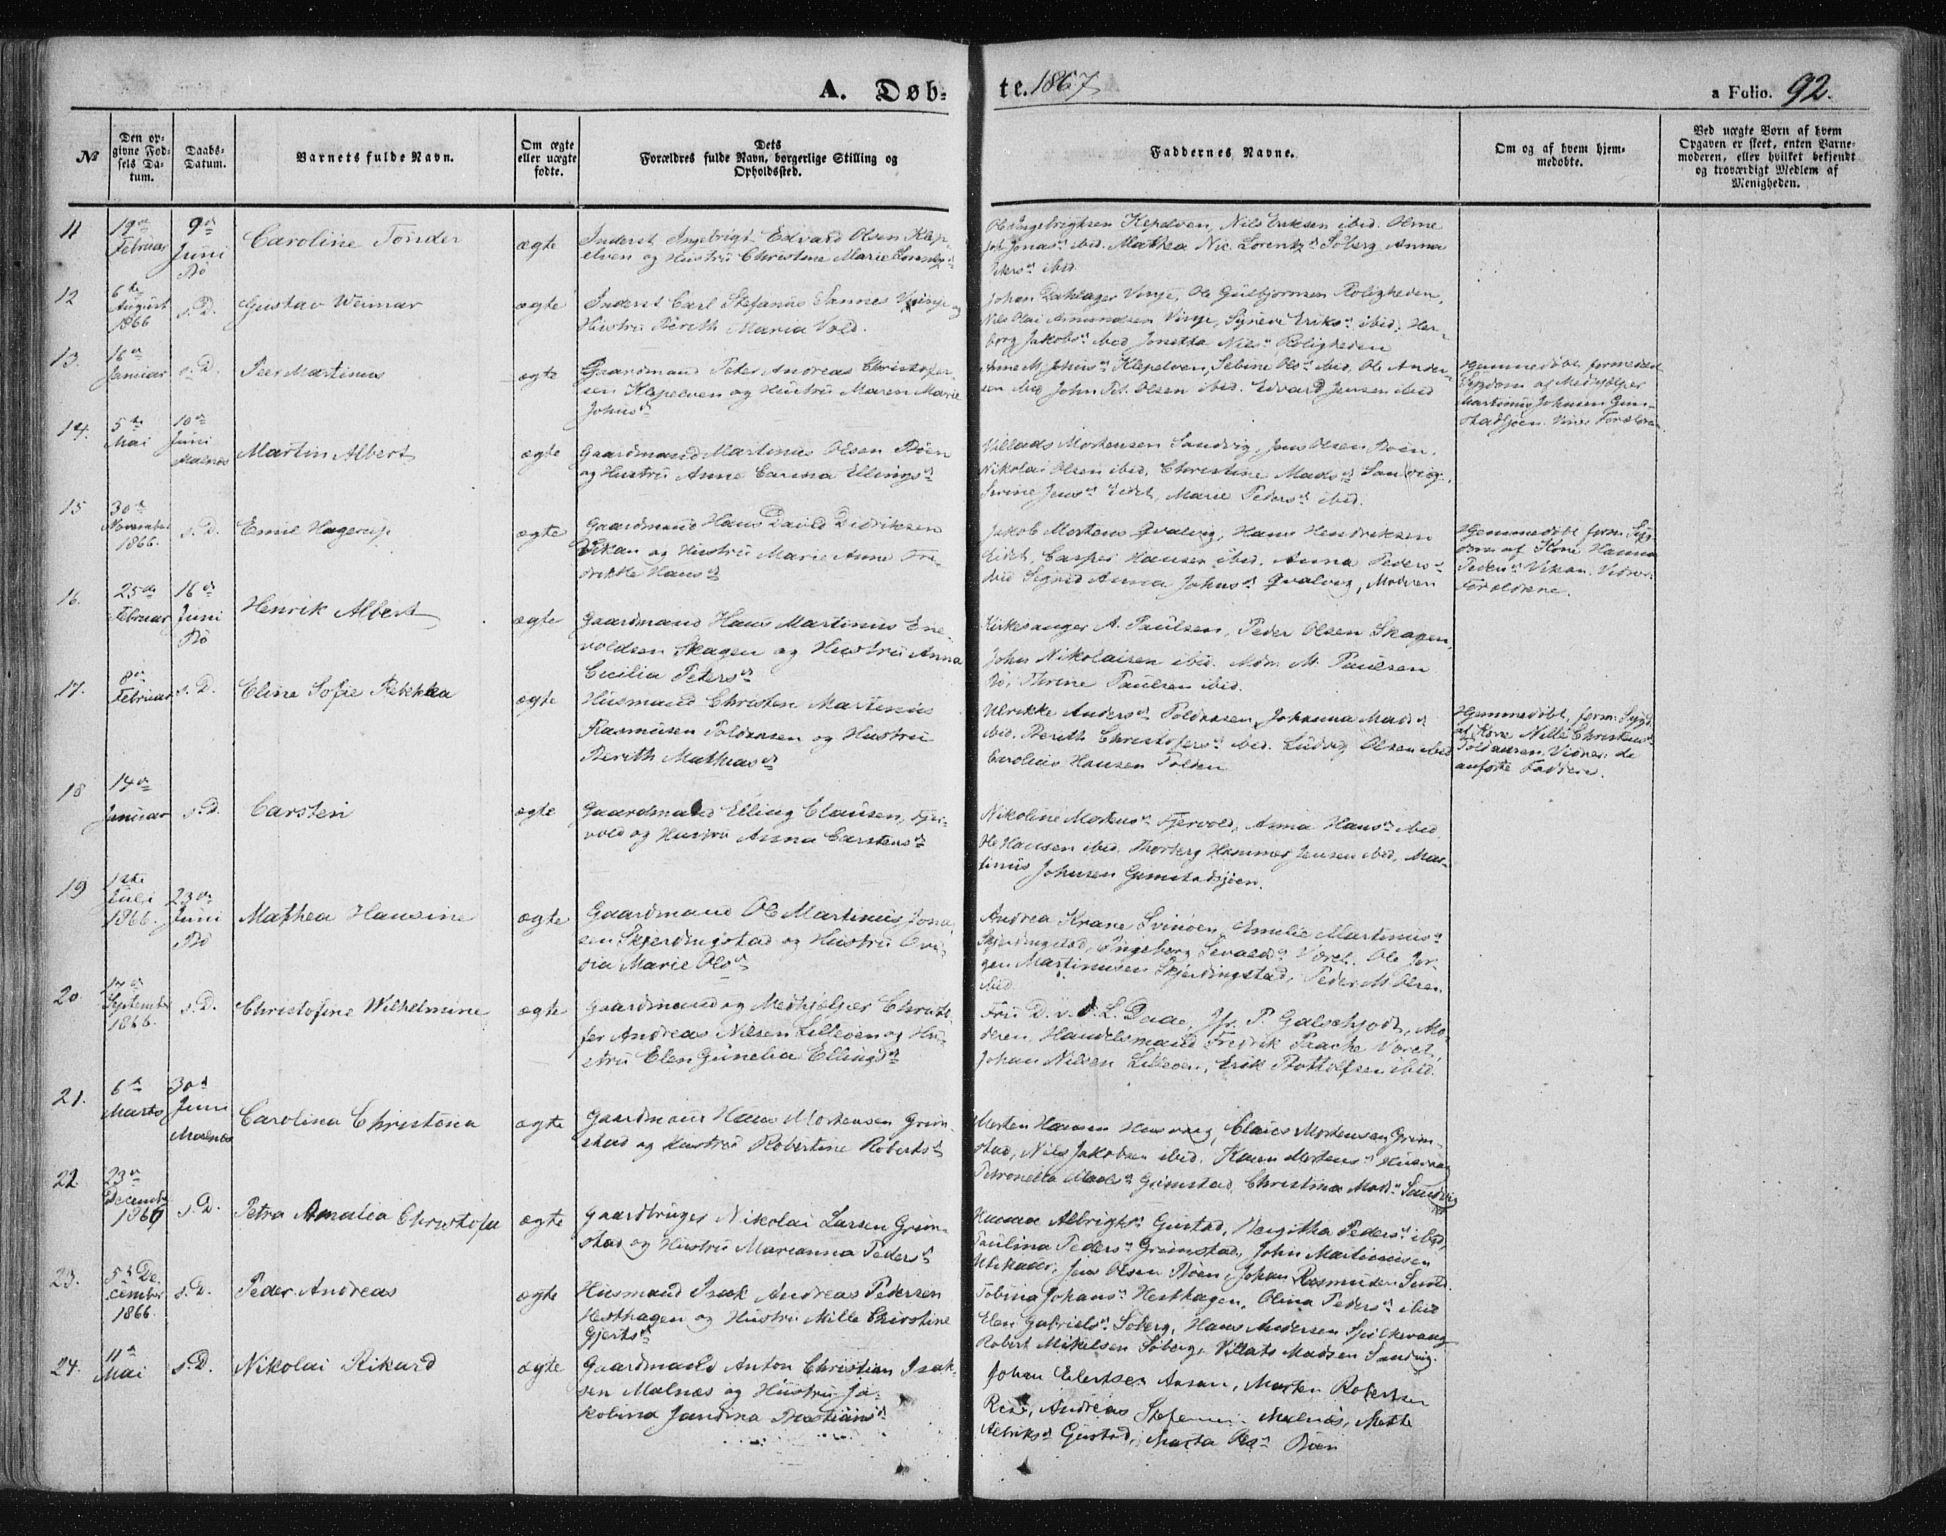 A. Døb-
te. 1867
a Folio. 92.
№
Den op-
givne Fød-
sels Da-
tum.
Daabs-
Datum.
Barnets fulde Navn.
Om ægte
eller uægte
fødte.
Dets
Forældres fulde Navn, borgerlige Stilling og
Opholdssted.
Faddernes Navne.
Om og af hvem hjem-
medøbte.
Ved uægte Børn af hvem
Opgaven er skeet, enten Barne-
moderen, eller hvilket bekjendt
og troværdigt Medlem af
Menigheden.
11
19de
Februar
9de
Juni
Bö
Caroline Tönder
ægte
Inderst Ingebrigt Edvard Olsen Klep-
elven og Hustru Christine Marie
Ole Ingebrigtsen Klepelven, Nils Eriksen ibid. Oline
Jonasd ibid. Mathea Nic. Lorentzd Söberg Anna
ibid.
12
6te
August
1866
s.D.
Gustav Weimar
ægte
Inderst Carl Stefanus Sannes Vinje og
Hustru Berith Maria Vold.
Johan Dahlager Vinje, Ole Guldjornsen Roligheden,
Nils Olai Amundsen Vinje, Synevi Eriksd ibid. Her-
borg Jakobsd ibid Jonetta Nilsd Roligheden
13.
16de
Januar
s.D.
Peer Martinus
ægte
Gaardmand Peter Andreas Christofer-
sen Klepelven og Hustru Maren Marie
Johnsd
Anne M. Johnsd Klepelven, Sebine Olsd ibid, Ole Ander-
sen ibid, John Pet. Olsen ibid. Edvard Jensen ibid
Hjemmedöbt formedelst
Sygdom af Medhjælper
Martinus Johnsen Gim-
stadsjöen. Forældrene
14.
5te
Mai
10de
Juni
Malnes
Martin Albert
ægte
Gaardmand Martinus Olsen Böen
og Hustru Anne Carina Ellingsd
Villads Mortensen Sandvig, Jens Olsen Böen.
Nikolai Olsen ibid, Christine Madsd Sandvig,
Serine Jensd Eidet, Marie Pedersd ibid.
15
30te
November
1866.
s.D.
Emil Hagerup
ægte
Gaardmand Hans David Didriksen
Vikan og Hustru Marie Anne Fri-
drikke Hansd
Jakob Mortens Qvalvig, Hans Hendriksen
Eidet, Casper Hansen ibid. Anna Pedersd
ibid Sigrid Anna Johnsd Qvalvig, Moderen
Hjemmedöbt form. Syg-
dom af Kone Hanna
Pedersd Vikan. Vidner:
Forældrene.
16.
25de
Februar
16de
Juni
Bö
Henrik Albert
ægte
Gaardmand Hans Martinius Ene-
voldsen Skagen og Hustru Anna
Cecilia Petersd
Kirkesanger A. Paulsen, Peder Olsen Skagen,
John Nikolaisen ibid. Mdm. M. Paulsen
Bö, Thrine Paulsen ibid.
17.
8de
Februar
s.D.
Eline Sofie Rebekka
ægte
Husmand Christen Martinus
Rasmusen Toldaasen og Hustru
Berith Mathiasd
Ulrikke Andersd Toldaasen, Johanna Madsd
ibid. Berith Christofersd ibid. Ludvig Olsen ibid
Carolius Hansen Tolden
Hjemmedöbt, form. Sygd.
af Kone Nille Christensd
Toldaasen. Vidner: de
anförte Faddere.
18
14de
Januar
s.D.
Carsten
ægte
Gaardmand Elling Clausen, Fjær-
vold og Hustru Anna Carstensd
Nikoline Mortensd Fjervold, Anna Hansd ibid.
Ole Hansen ibid. Thorberg Hammer Jensen ibid, Mar-
tinus Johnsen Gimstadsjöen.
19
1ste
Juli
1866.
23de
Juni
Bö
Mathea Hansine
ægte
Gaardmand Ole Martinus Jona-
sen Skjerdingstad og Hustru
Marie Olsd
Andrea Krane Svinöen, Emelie Martinusd
Skjerdingstad, Ingeborg Sivaldsd Voret. Ole Jör-
gen Martinusen Skjerdingstad, Peder M. Olsen
ibid
20.
September
1866.
s.D.
Christofine Wilhelmine
ægte
Gaardmand og Medhjelper Christo-
fer Andreas Nilsen Lilleven og Hu-
stru Elen Gunelia Ellingsd
Fru D. v. d. L. Daae, Jfr. P. Galschjödt, Mo-
deren, Handelsmand Fredrik Prache Voret,
Johan Nilsen Lilleven, Erik Rottolfsen ibid.
21.
6te
Marts
30te
Juni
Malnes
Carolina Christina
ægte
Gaardmand Hans Mortensen Grim-
stad og Hustru Robertine Robertsd
Morten Hansen Husvaag, Claus Mortensen Grim-
stad, Nils Jakobsen ibid. Karen Mortensd Husvaag
Petronella Madsd Grimstad, Christina Madsd Sandvig
22
23de
December
1866
s.D.
Petra Amalia Christofa
ægte
Gaardbruger Nikolai Larsen Grim-
stad og Hustru Marianna Pedersd
Hanna Albrigtsd Gustad, Bergitha Pedersd ibid,
Paulina Pedersd Grimstad, John Martinusen
Utskader, Jens Olsen Böen, Johan Rasmusen
23.
5te De-
cember
1866
s.D.
Peder Andreas
ægte
Husmand Isak Andreas Pedersen
Hesthagen og Hustru Mille Christine
Gjertsd
Tobina Johansd Hesthagen, Olina Pedersd ibid
Elen Gabrielsd Söberg, Hans Andersen Spjelkevaag
Robert Mikelsen Söberg, Villats Madsen Sandvig.
24.
11te
Mai
s.D.
Nikolai Rikard
ægte
Gaardmand Anton Christian Isak-
sen Malnæs og Hustru Ja-
kobina Jandina Bastiansd
Johan Elertsen Aasan, Morten Robertsen
Andreas Malnæs, Mette
Albriksd Gustad, Marta Olsd Böen